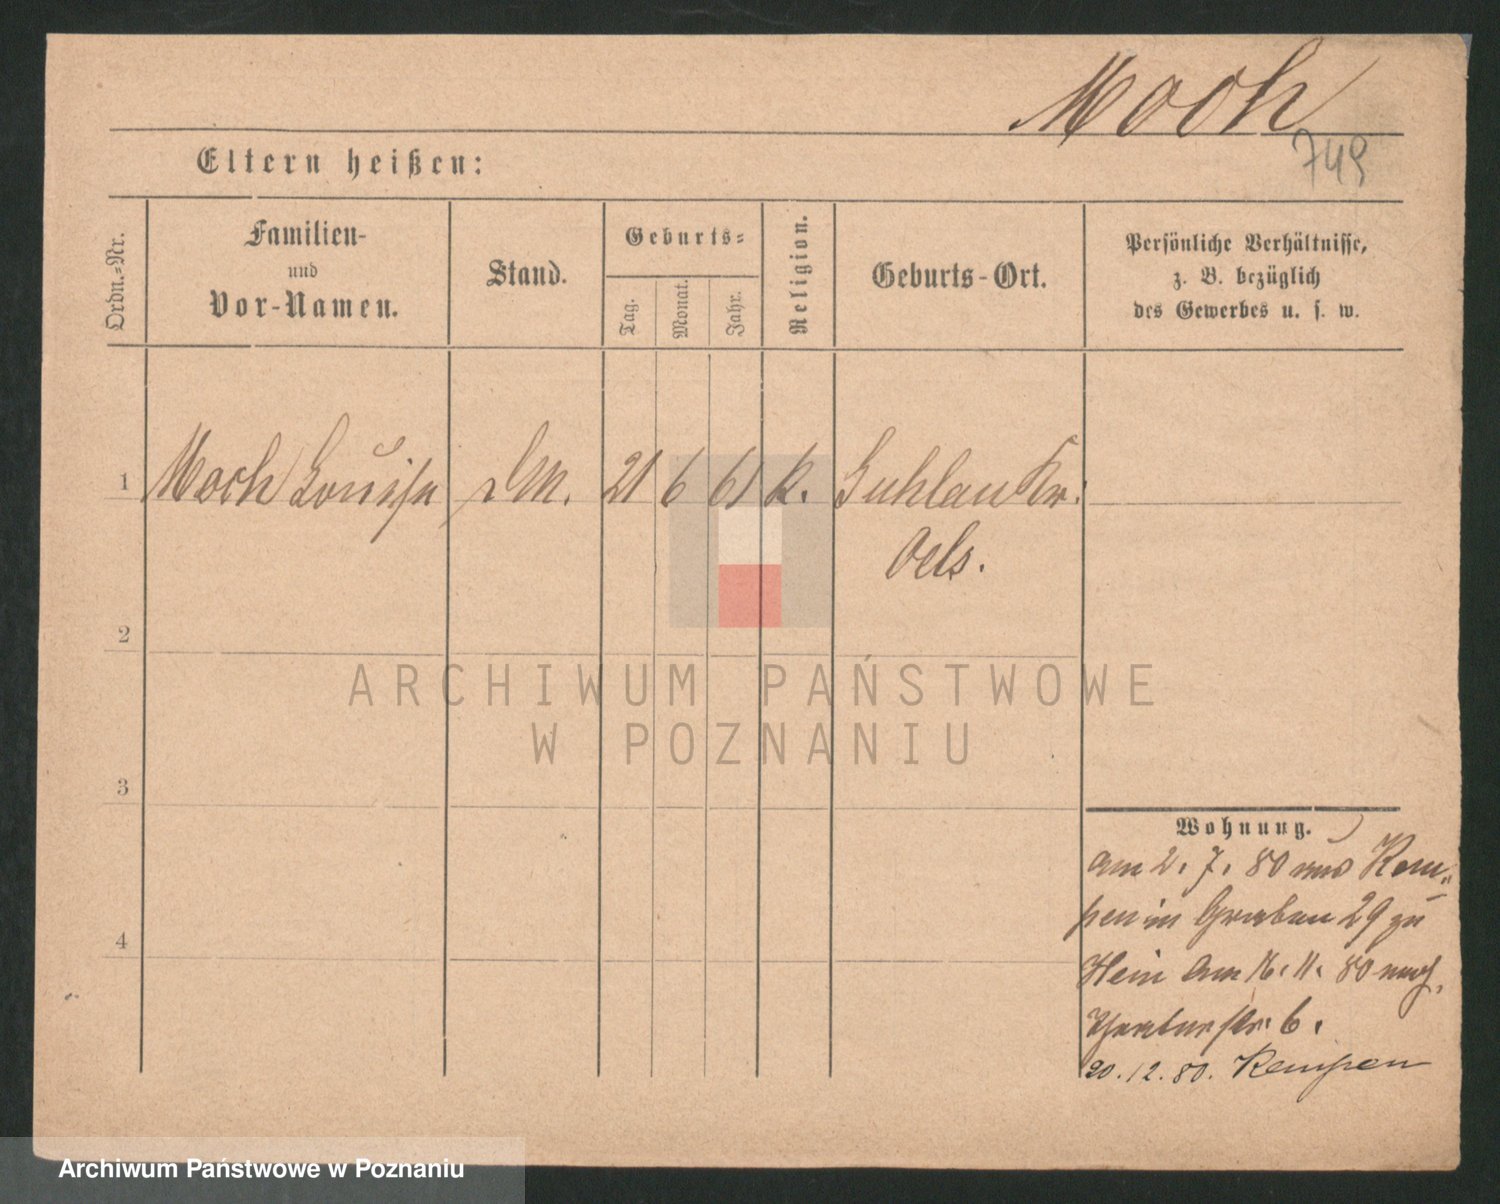 Moch
749
Eltern heißen:
Ordn.-Nr.
Familien-
und
Vor-Namen.
Stand.
Geburts-
Tag.
Monat.
Jahr.
Religion.
Geburts-Ort.
Persönliche Verhältnisse,
z. B. bezüglich
des Gewerbes u. s. w.
1 Moch Louise DM. 21 6 61 k. Guhlau Kr.
Oels.
2
3
4
Wohnung.
Am 2. 7. 80 aus Kem-
pen in Graben 29 zu
Hein Am 16. 11. 80 nach
Theaterstr. 6.
20.12.80. Kempen
ARCHIWUM PAŃSTWOWE
W POZNANIU
Archiwum Państwowe w Poznaniu